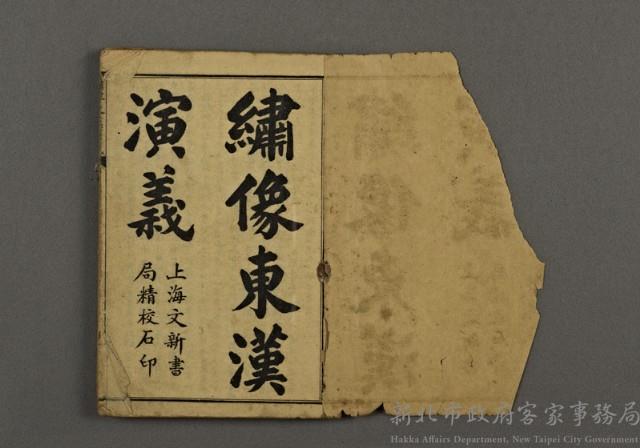 繡像東漢
演義
上海文新書
局精校石印
新北市政府客家事務局
Hakka Affairs Department, New Taipei City Government